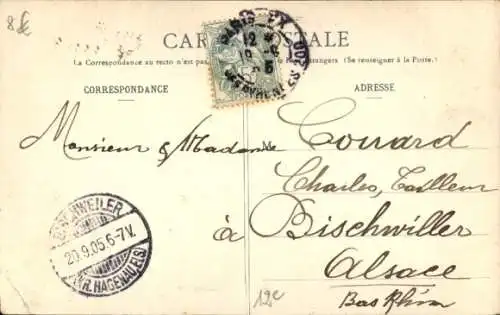 8€
CARTE POSTALE
La Correspondance au recto n'est pas
étrangers (Se renseigner à la Poste.)
CORRESPONDANCE
ADRESSE
PARIS
12
5
Monsieur & Madame
Conrard
Charles, Tailleur
à Bischwiller
Alsace
Bas Rhin
BISCHWEILER
20.9.05.6-7V.
(KR. HAGENAU ELS)
12e